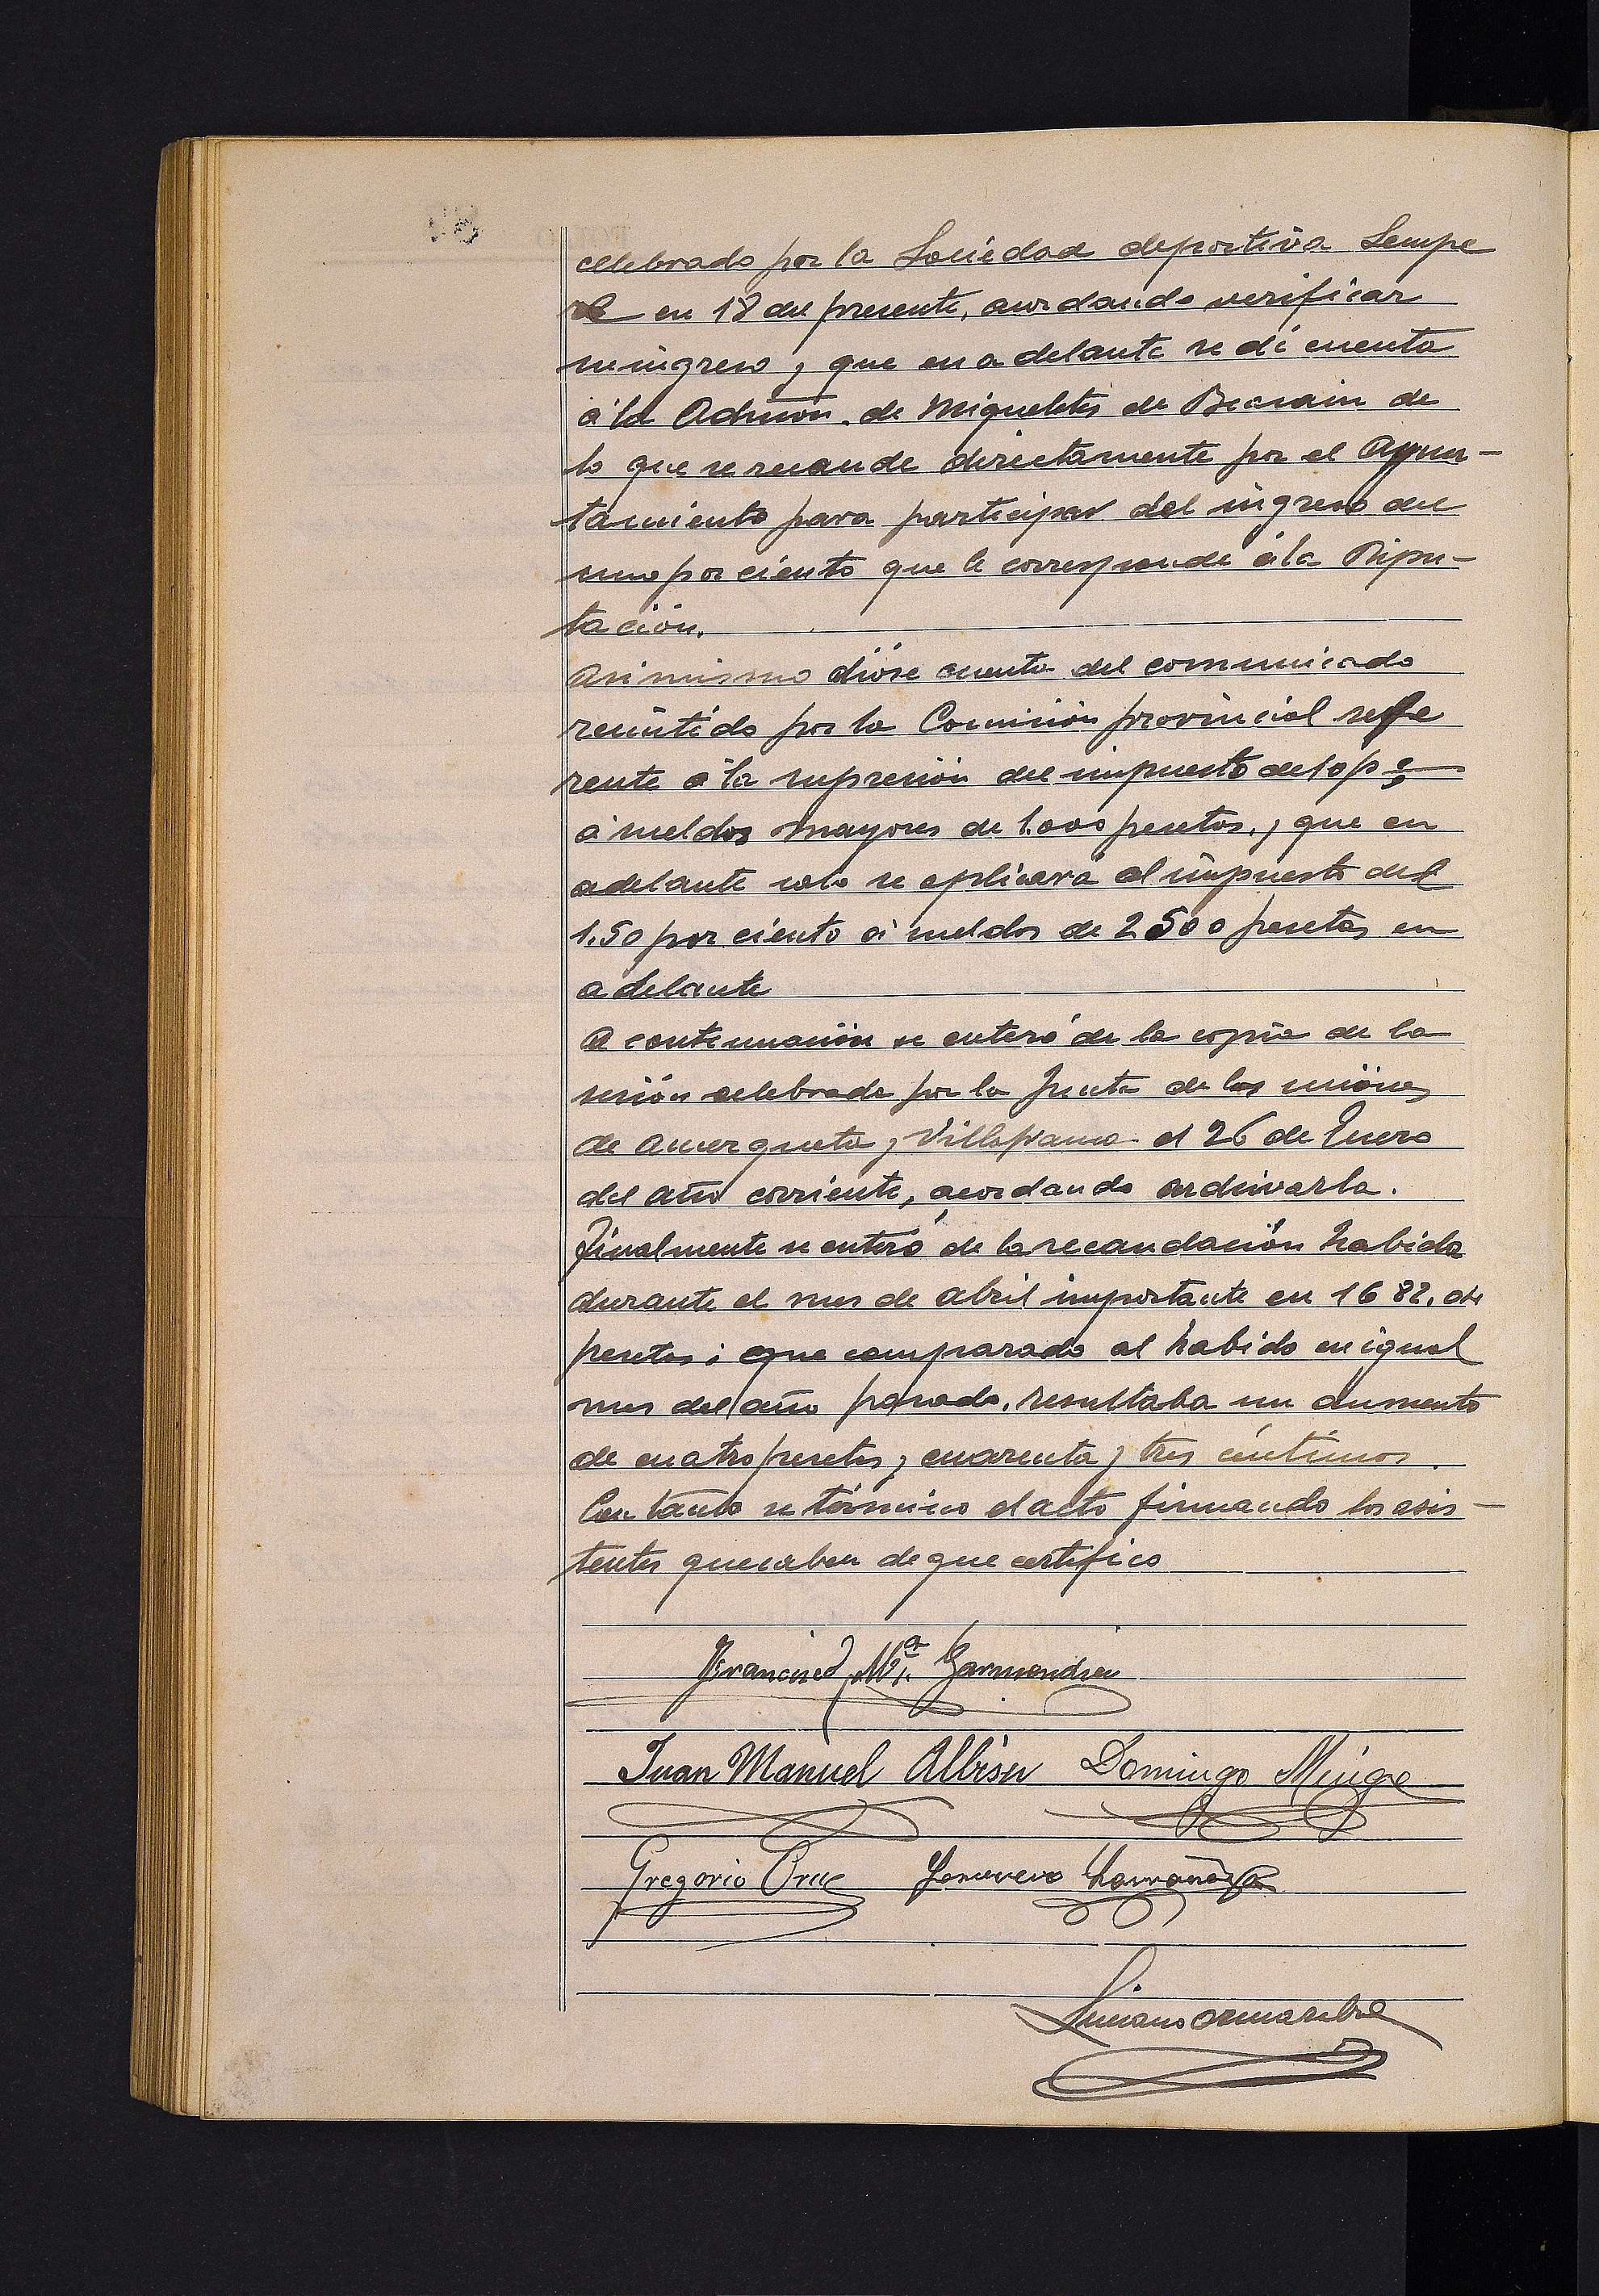 celebrado por la Sociedad deportiva Lempe
re en 18 del presente, acordando verificar
su ingreso y que en adelante se dé cuenta
á la Admón. de Miqueletes de Beasain de
lo que se recaude directamente por el Ayun-
tamiento para participar del ingreso del
uno por ciento que le corresponde á la Dipu-
tación.
Asimismo dióse cuenta del comunicado
remitido por la Comisión provincial refe
rente á la supresión del impuesto de 1 o/o
á sueldos mayores de 1.000 pesetas, y que en
adelante solo se aplicará el impuesto del
1.50 por ciento á sueldos de 2500 pesetas en
adelante
A continuación se enteró de la copia de la
sesión celebrada por la Junta de las uniones
de Amezqueta y Villafranca el 26 de Enero
del año corriente, acordando archivarla.
Finalmente se enteró de la recaudación habida
durante el mes de abril importante en 1682,
pesetas; que comparado al habido en igual
mes del año pasado, resultaba un aumento
de cuatro pesetas y cuarenta y tres céntimos.
Con tanto se término el acto firmando los asis-
tentes que saben de que certifico
Francisco Mª. Garmendia
Juan Manuel Albisu Domingo Múgica
Gregorio Orue
Luciano